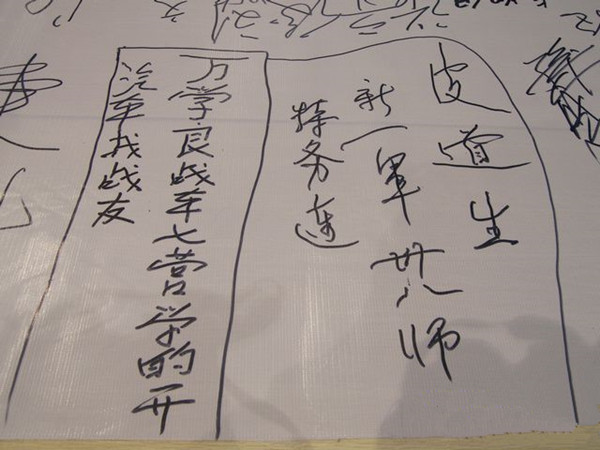 皮道生
新一军卅八师
特务连
万学良战车七营学的开
汽车找战友